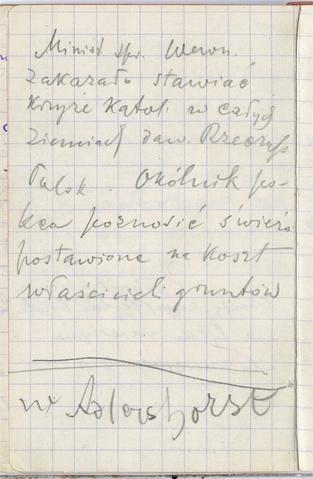 Minist spr. Wewn.
zakazało stawiać
Krzyże Katol. w całych
ziemiach daw. Rzeczp
Polsk. Okólnik po-
leca poznosić świeżo
postawione na koszt
właścicieli gruntów
w Adlershorst